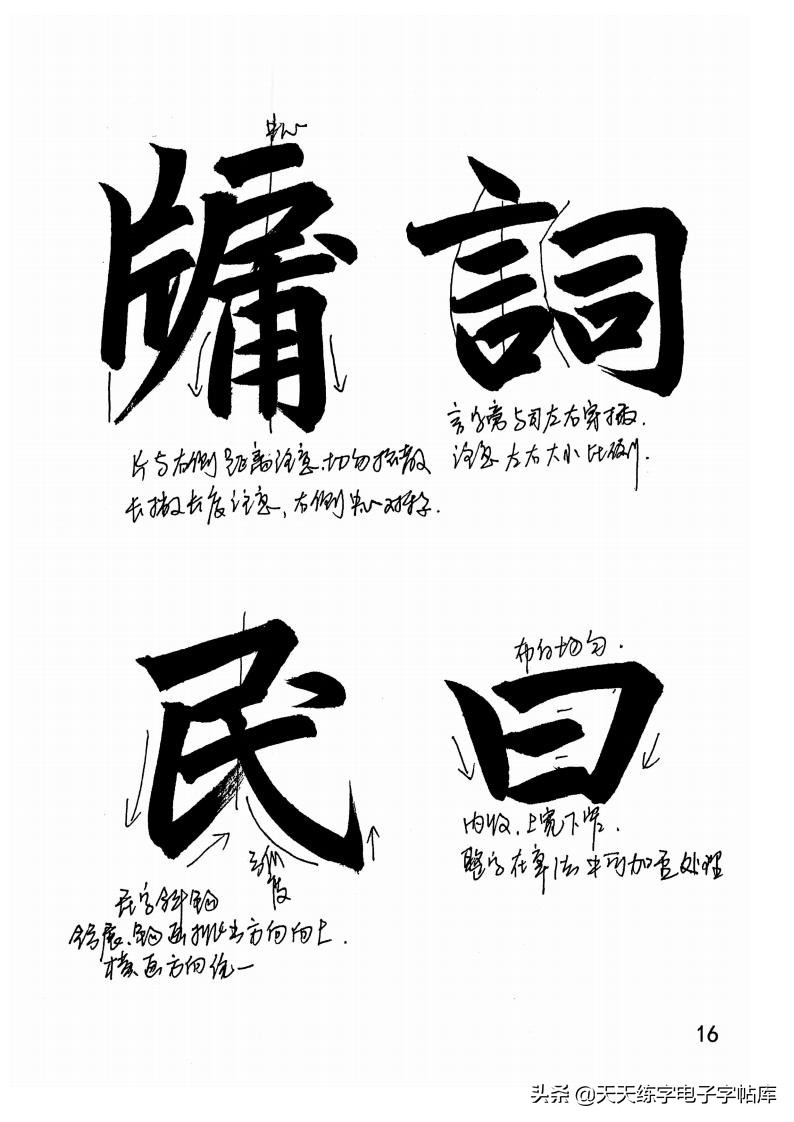 中心
牖 詞
片与右侧距离注意、切勿松散
长撇长度注意、右侧中心对称.
言字旁与司左右穿插.
注意左右大小比例.
民 曰
布白均匀.
弧度
民字斜钩
舒展、钩画挑出方向向上.
横画方向统一
内收、上宽下窄.
整字在章法中可加重处理
16
头条 @天天练字电子字帖库